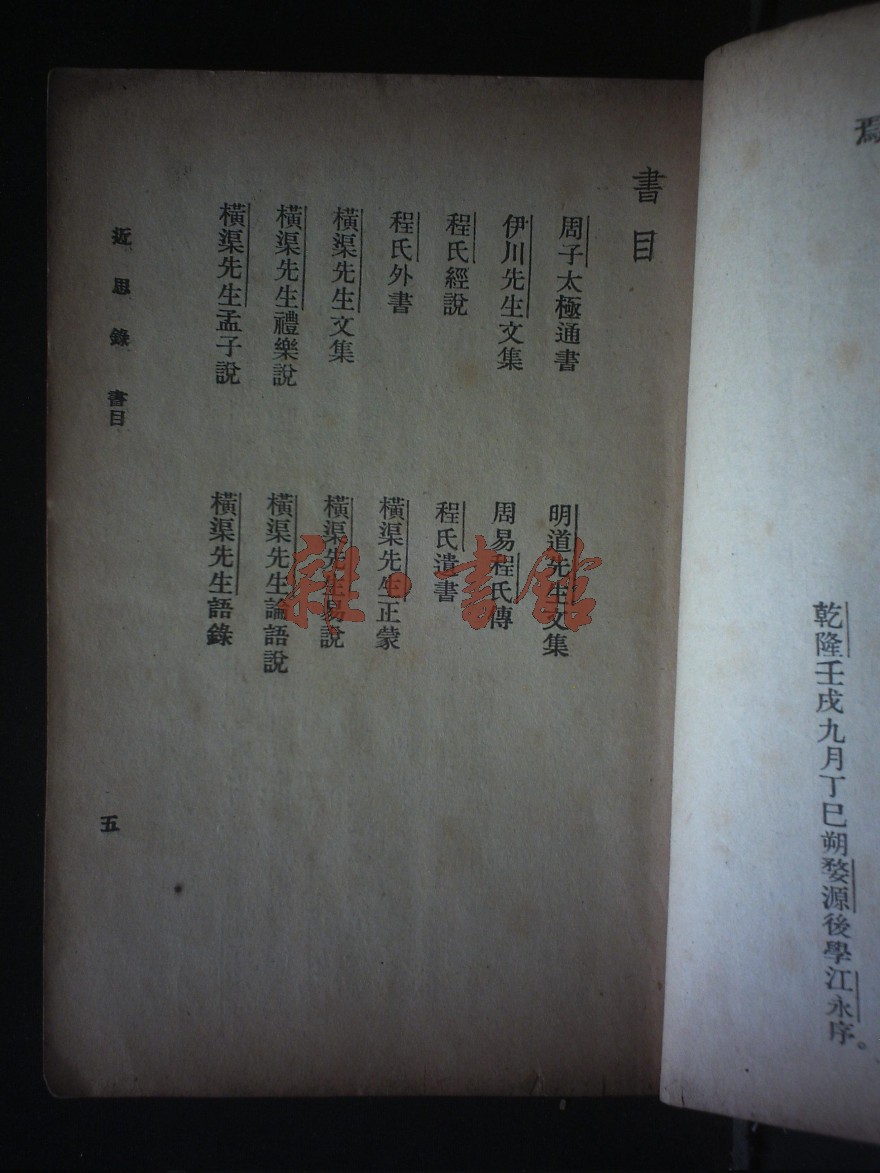 焉
乾隆壬戌九月丁巳朔婺源後學江永序。
書目
周子太極通書
明道先生文集
伊川先生文集
周易程氏傳
程氏經說
程氏遺書
程氏外書
橫渠先生正蒙
橫渠先生文集
橫渠先生易說
橫渠先生禮樂說
橫渠先生論語說
橫渠先生孟子說
橫渠先生語錄
近思錄 書目
五
雜·書館